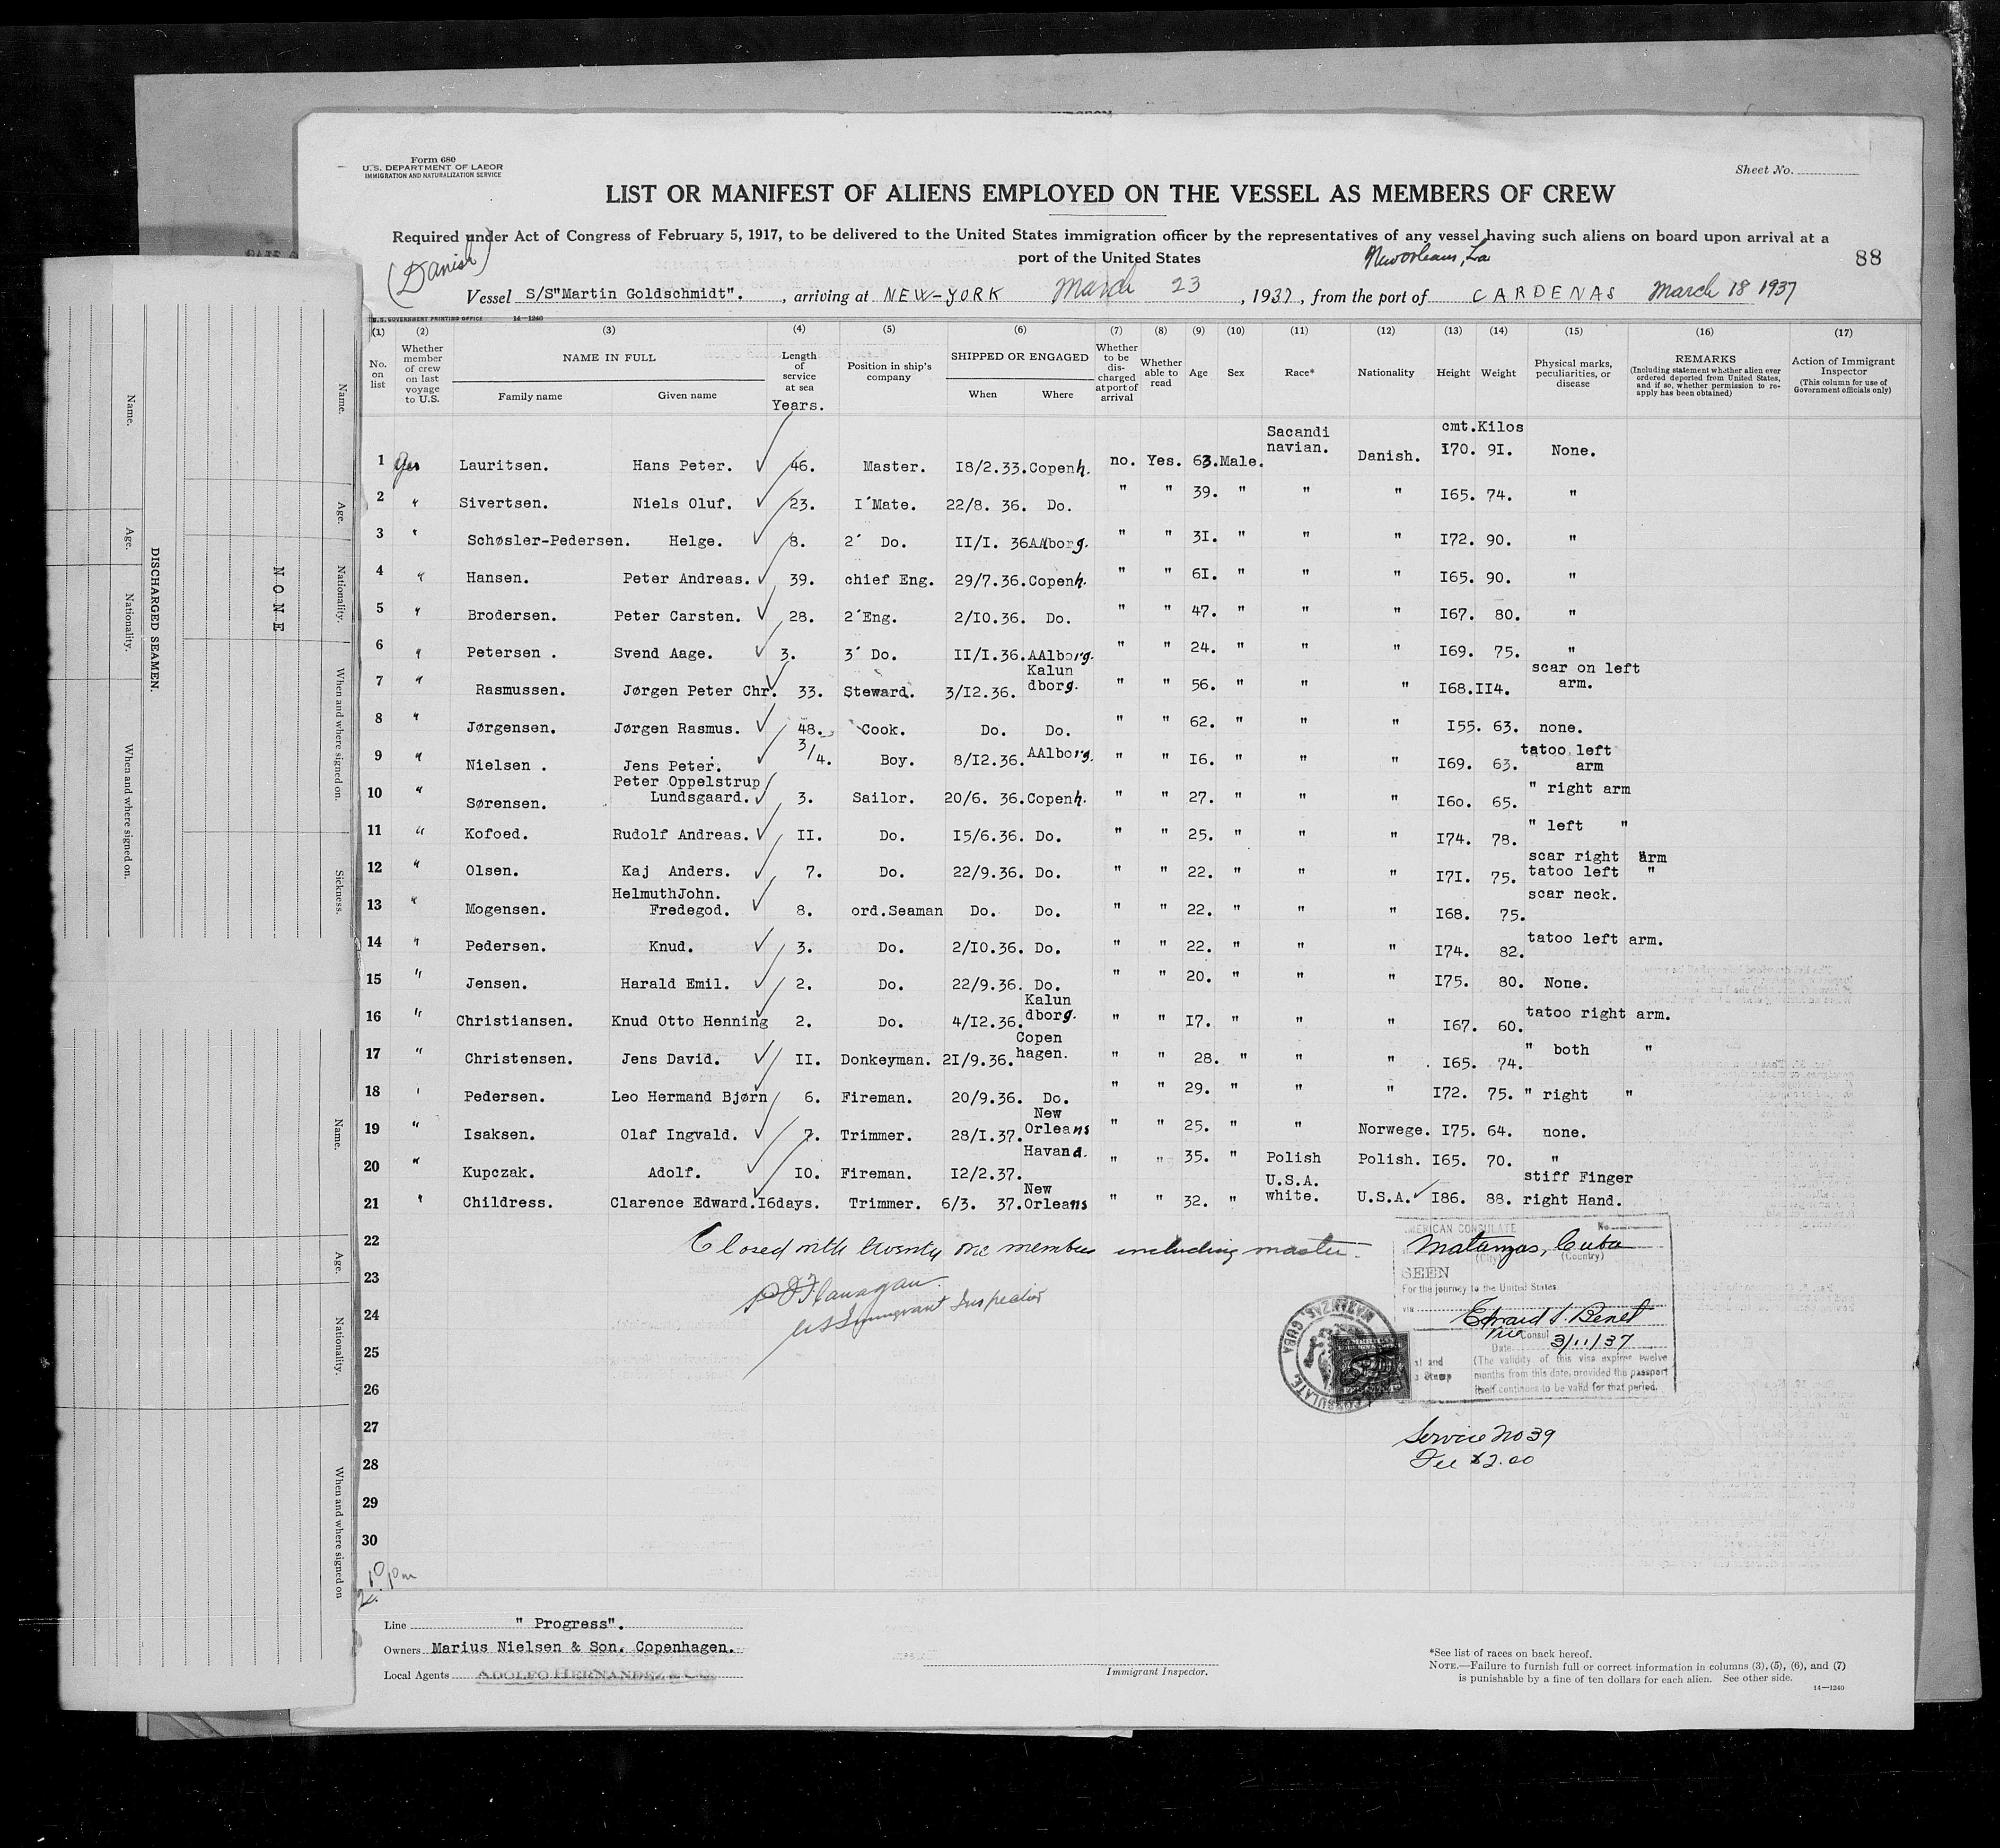 Form 680
U. S. DEPARTMENT OF LABOR
IMMIGRATION AND NATURALIZATION SERVICE
Sheet No.
LIST OR MANIFEST OF ALIENS EMPLOYED ON THE VESSEL AS MEMBERS OF CREW
Required under Act of Congress of February 5, 1917, to be delivered to the United States immigration officer by the representatives of any vessel having such aliens on board upon arrival at a
port of the United States
New Orleans, La
88
(Danish)
Vessel S/S"Martin Goldschmidt". , arriving at NEW-YORK March 23 , 1937, from the port of CARDENAS March 18 1937
U. S. GOVERNMENT PRINTING OFFICE 14—1240
(1) (2) (3) (4) (5) (6) (7) (8) (9) (10) (11) (12) (13) (14) (15) (16) (17)
No. on list
Whether member of crew on last voyage to U.S.
NAME IN FULL
Family name Given name
Length of service at sea
Years.
Position in ship's company
SHIPPED OR ENGAGED
When Where
Whether to be discharged at port of arrival
Whether able to read
Age
Sex
Race*
Nationality
Height
Weight
Physical marks, peculiarities, or disease
REMARKS
(Including statement whether alien ever ordered deported from United States, and if so, whether permission to reapply has been obtained)
Action of Immigrant Inspector
(This column for use of Government officials only)
cmt. Kilos
1 Yes Lauritsen. Hans Peter. 46. Master. I8/2.33. Copenh. no. Yes. 63. Male. Sacandi navian. Danish. I70. 9I. None.
2 " Sivertsen. Niels Oluf. 23. I´Mate. 22/8. 36. Do. " " 39. " " " I65. 74. "
3 " Schøsler-Pedersen. Helge. 8. 2´ Do. II/I. 36 AAlborg. " " 3I. " " " I72. 90. "
4 " Hansen. Peter Andreas. 39. chief Eng. 29/7.36. Copenh. " " 6I. " " " I65. 90. "
5 " Brodersen. Peter Carsten. 28. 2´Eng. 2/I0.36. Do. " " 47. " " " I67. 80. "
6 " Petersen . Svend Aage. 3. 3´ Do. II/I.36. AAlborg. " " 24. " " " I69. 75. "
7 " Rasmussen. Jørgen Peter Chr. 33. Steward. 3/I2.36. Kalun dborg. " " 56. " " " I68. II4. scar on left arm.
8 " Jørgensen. Jørgen Rasmus. 48. Cook. Do. Do. " " 62. " " " I55. 63. none.
9 " Nielsen . Jens Peter. 3/4. Boy. 8/I2.36. AAlborg. " " I6. " " " I69. 63. tatoo left arm
10 " Sørensen. Peter Oppelstrup Lundsgaard. 3. Sailor. 20/6. 36. Copenh. " " 27. " " " I6o. 65. " right arm
11 " Kofoed. Rudolf Andreas. II. Do. I5/6.36. Do. " " 25. " " " I74. 78. " left "
12 " Olsen. Kaj Anders. 7. Do. 22/9.36. Do. " " 22. " " " I7I. 75. scar right arm tatoo left "
13 " Mogensen. HelmuthJohn. Fredegod. 8. ord.Seaman Do. Do. " " 22. " " " I68. 75. scar neck.
14 " Pedersen. Knud. 3. Do. 2/I0.36. Do. " " 22. " " " I74. 82. tatoo left arm.
15 " Jensen. Harald Emil. 2. Do. 22/9.36. Do. " " 20. " " " I75. 80. None.
16 " Christiansen. Knud Otto Henning 2. Do. 4/I2.36. Kalun dborg. " " I7. " " " I67. 60. tatoo right arm.
17 " Christensen. Jens David. II. Donkeyman. 2I/9.36. Copen hagen. " " 28. " " " I65. 74. " both "
18 " Pedersen. Leo Hermand Bjørn 6. Fireman. 20/9.36. Do. " " 29. " " " I72. 75. " right "
19 " Isaksen. Olaf Ingvald. 7. Trimmer. 28/I.37. New Orleans " " 25. " " Norwege. I75. 64. none.
20 " Kupczak. Adolf. I0. Fireman. I2/2.37. Havana. " " 35. " Polish Polish. I65. 70. "
21 " Childress. Clarence Edward. I6days. Trimmer. 6/3. 37. New Orleans " " 32. " U.S.A. white. U.S.A. I86. 88. stiff Finger right Hand.
22 Closed with twenty one members including master.
23
24
25
26
27
28
29
30
P J Flanagan
US Immigrant Inspector
AMERICAN CONSULATE No
Matanzas, Cuba
(City) (Country)
SEEN
For the journey to the United States
via
Edward S. Benet
Vice Consul
Date 3/11/37
(The validity of this visa expires twelve
months from this date, provided the passport
itself continues to be valid for that period.
CONSULATE, MATANZAS, CUBA
Service No 39
Fee $2.00
2.10 pm
Line " Progress".
Owners Marius Nielsen & Son. Copenhagen.
Local Agents ADOLFO HERNANDEZ & CO.
Immigrant Inspector.
*See list of races on back hereof.
NOTE.—Failure to furnish full or correct information in columns (3), (5), (6), and (7)
is punishable by a fine of ten dollars for each alien. See other side.
14—1240
DISCHARGED SEAMEN.
Name. Age. Nationality. When and where signed on.
Name. Age. Nationality. When and where signed on. Sickness.
NONE
Name. Age. Nationality. When and where signed on